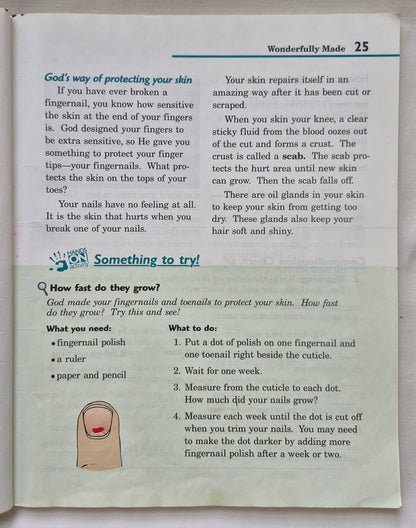 Wonderfully Made 25
God's way of protecting your skin
If you have ever broken a
fingernail, you know how sensitive
the skin at the end of your fingers
is. God designed your fingers to
be extra sensitive, so He gave you
something to protect your finger
tips—your fingernails. What pro-
tects the skin on the tops of your
toes?
Your nails have no feeling at all.
It is the skin that hurts when you
break one of your nails.
Your skin repairs itself in an
amazing way after it has been cut or
scraped.
When you skin your knee, a clear
sticky fluid from the blood oozes out
of the cut and forms a crust. The
crust is called a scab. The scab pro-
tects the hurt area until new skin
can grow. Then the scab falls off.
There are oil glands in your skin
to keep your skin from getting too
dry. These glands also keep your
hair soft and shiny.
HANDS
ON
ACTIVITY
Something to try!
How fast do they grow?
God made your fingernails and toenails to protect your skin. How fast
do they grow? Try this and see!
What you need:
• fingernail polish
• a ruler
• paper and pencil
What to do:
1. Put a dot of polish on one fingernail and
one toenail right beside the cuticle.
2. Wait for one week.
3. Measure from the cuticle to each dot.
How much did your nails grow?
4. Measure each week until the dot is cut off
when you trim your nails. You may need
to make the dot darker by adding more
fingernail polish after a week or two.